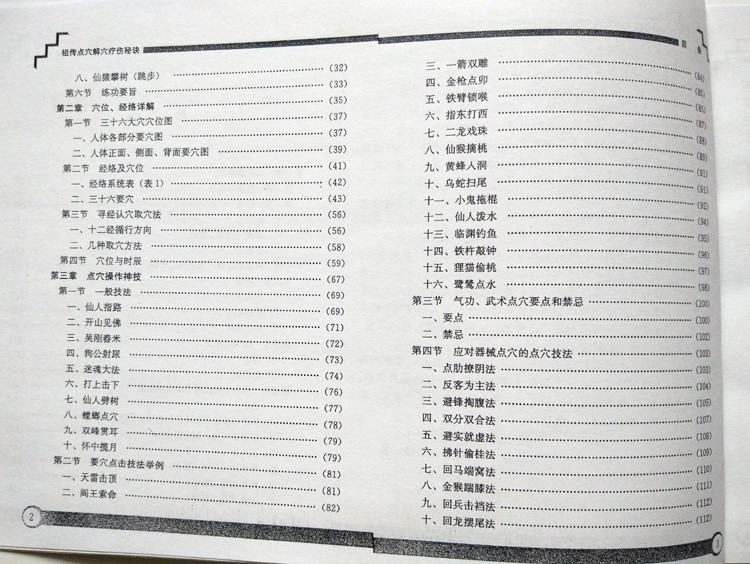 祖传点穴解穴疗伤秘诀
八、仙猿攀树（跳步）(32)
第六节 练功要旨(33)
第二章 穴位、经络详解(35)
第一节 三十六大穴穴位图(37)
一、人体各部分要穴图(37)
二、人体正面、侧面、背面要穴图(39)
第二节 经络及穴位(41)
一、经络系统表（表1）(42)
二、三十六要穴(43)
第三节 寻经认穴取穴法(56)
一、十二经循行方向(56)
二、几种取穴方法(58)
第四节 穴位与时辰(59)
第三章 点穴操作神技(67)
第一节 一般技法(69)
一、仙人指路(69)
二、开山见佛(71)
三、吴刚舂米(72)
四、狗公射尿(73)
五、迷魂大法(74)
六、打上击下(76)
七、仙人劈树(77)
八、螳螂点穴(78)
九、双峰贯耳(79)
十、怀中揽月(79)
第二节 要穴点击技法举例(81)
一、天雷击顶(81)
二、阎王索命(82)
2
目 录
三、一箭双雕(84)
四、金枪点卯(85)
五、铁臂锁喉(85)
六、指东打西(87)
七、二龙戏珠(88)
八、仙猴摘桃(89)
九、黄蜂入洞(91)
十、乌蛇扫尾(91)
十一、小鬼拖棍(92)
十二、仙人泼水(94)
十三、临渊钓鱼(95)
十四、铁杵敲钟(96)
十五、狸猫偷桃(97)
十六、鹭鸶点水(98)
第三节 气功、武术点穴要点和禁忌(100)
一、要点(100)
二、禁忌(102)
第四节 应对器械点穴的点穴技法(103)
一、点肋撩阴法(103)
二、反客为主法(104)
三、避锋掏腹法(105)
四、双分双合法(107)
五、避实就虚法(108)
六、拂针偷桂法(109)
七、回马端窝法(110)
八、金猴踹膝法(111)
九、回兵击裆法(112)
十、回龙摆尾法(112)
3